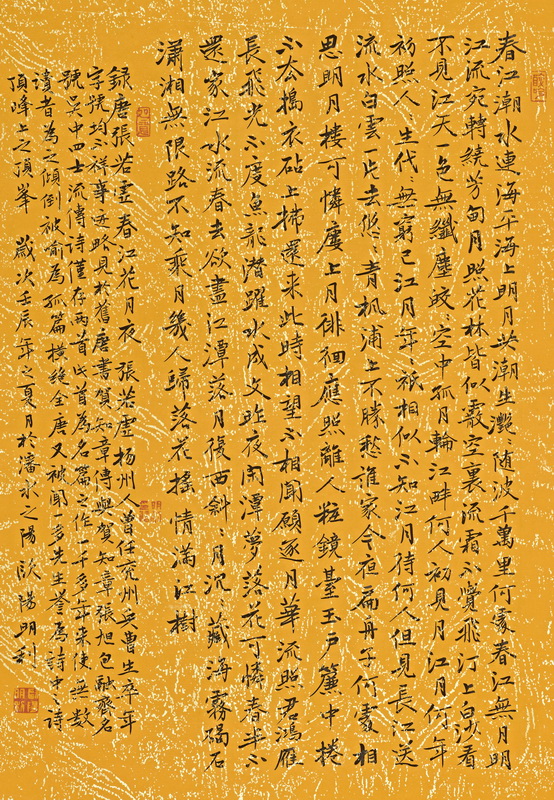 春江潮水連海平海上明月共潮生灔〻随波千萬里何處春江無月明
江流宛轉繞芳甸月照花林皆似霰空裏流霜不覺飛汀上白沙看
不見江天一色無纖塵皎〻空中孤月輪江畔何人初見月江月何年
初照人〻生代〻無窮已江月年〻衹相似不知江月待何人但見長江送
流水白雲一片去悠〻青楓浦上不勝愁誰家今夜扁舟子何處相
思明月樓可憐樓上月徘徊應照離人粧鏡臺玉戶簾中捲
不去搗衣砧上拂還來此時相望不相聞願逐月華流照君鴻雁
長飛光不度魚龍潛躍水成文昨夜閑潭夢落花可憐春半不
還家江水流春去欲盡江潭落月復西斜〻月沉〻藏海霧碣石
瀟湘無限路不知乘月幾人歸落花搖情滿江樹
錄唐張若虛春江花月夜 張若虛揚州人曾任兗州兵曹生卒年
字號均不祥事迹略見於舊唐書賀知章傳與賀知章張旭包融齊名
號吳中四士流傳詩僅存兩首此首為名篇之作一千多年来使無數
讀者為之傾倒被前為孤篇橫絕全唐又被聞一多先生譽為詩中之詩
頂峰上之頂峯 歲次壬辰年之夏月於瀋水之陽歐陽明利